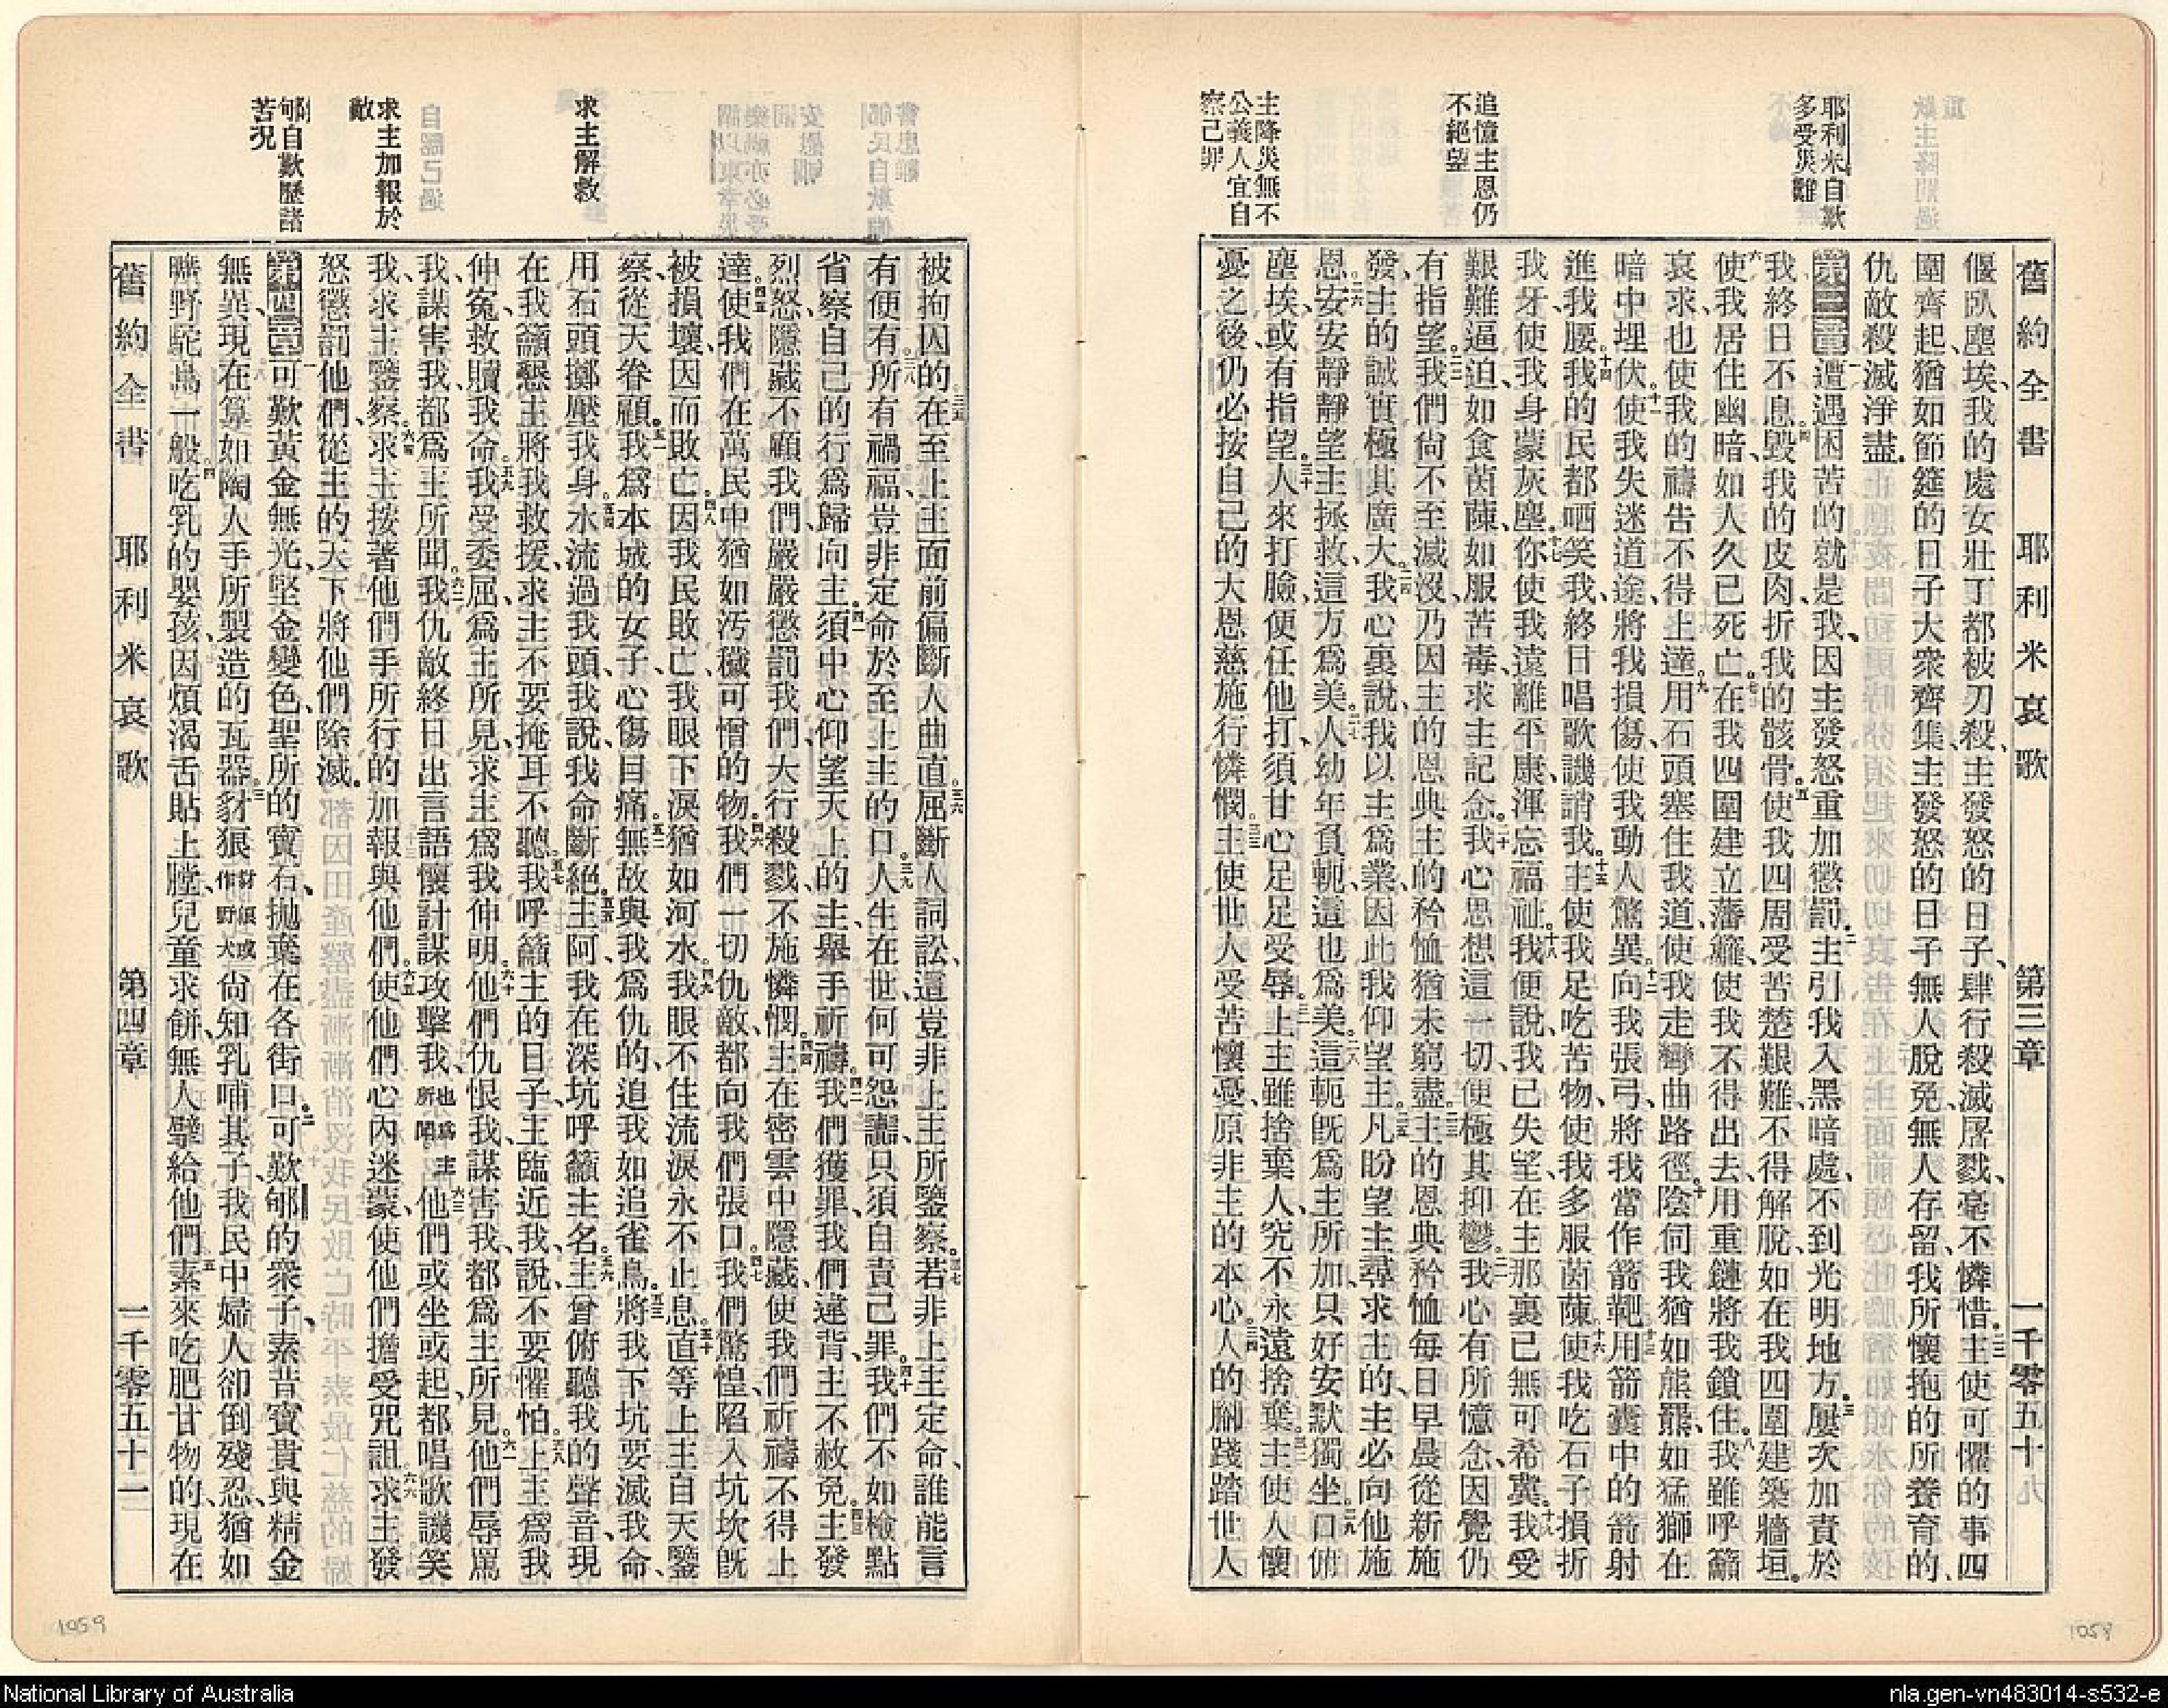 舊約全書 耶利米哀歌 第三章 一千零五十
耶利米自歎
多受災難
追憶主恩仍
不絕望
主降災無不
公義人宜自
察己罪
偃臥塵埃、我的處女壯丁都被刃殺、主發怒的日子、肆行殺滅屠戮、毫不憐惜。二二主使可懼的事四
圍齊起、猶如節筵的日子大衆齊集、主發怒的日子無人脫免無人存留、我所懷抱的所養育的、
仇敵殺滅淨盡。
第三章一遭遇困苦的就是我、因主發怒重加懲罰。二主引我入黑暗處、不到光明地方。三屢次加責於
我終日不息。四毀我的皮肉、折我的骸骨。五使我四周受苦楚艱難、不得解脫、如在我四圍建築牆垣。
六使我居住幽暗、如人久已死亡。七在我四圍建立藩籬、使我不得出去、用重鏈將我鎖住。八我雖呼籲
哀求也使我的禱告不得上達。九用石頭塞住我道、使我走彎曲路徑。十陰伺我猶如熊羆、如猛獅在
暗中埋伏。十一使我失迷道途、將我損傷、使我動人驚異。十二向我張弓、將我當作箭靶。十三用箭囊中的箭射
進我腰。十四我的民都哂笑我、終日唱歌譏誚我。十五主使我足吃苦物、使我多服茵蔯。十六使我吃石子損折
我牙、使我身蒙灰塵。十七你使我遠離平康、渾忘福祉。十八我便說、我已失望、在主那裏已無可希冀。十九我受
艱難逼迫、如食茵蔯、如服苦毒、求主記念。二十我心思想這一切、便極其抑鬱。二一我心有所憶念、因覺仍
有指望。二二我們尙不至滅沒、乃因主的恩典、主的矜恤猶未窮盡。二三主的恩典矜恤每日早晨從新施
發、主的誠實極其廣大。二四我心裏說、我以主爲業、因此我仰望主。二五凡盼望主尋求主的、主必向他施
恩。二六安安靜靜望主拯救、這方爲美。二七人幼年負軛、這也爲美。二八這軛旣爲主所加、只好安默獨坐。二九口俯
塵埃、或有指望。三十人來打臉、便任他打、須甘心足足受辱。三一上主雖捨棄人、究不永遠捨棄。三二主使人懷
憂之後、仍必按自己的大恩慈施行憐憫。三三主使世人受苦懷憂、原非主的本心。三四人的腳踐踏世人
求主解救
求主加報於
敵
郇自歎歷諸
苦況
被拘囚的、三五在至上主面前偏斷人曲直、三六屈斷人詞訟、這豈非上主所鑒察。三七若非上主定命、誰能言
有便有。三八所有禍福、豈非定命於至上主的口。三九人生在世、何可怨讟、只須自責己罪。四十我們不如檢點
省察自己的行爲、歸向主。四一須中心仰望天上的主、舉手祈禱。四二我們獲罪、我們違背、主不赦免。四三主發
烈怒、隱藏不顧我們、嚴嚴懲罰我們、大行殺戮、不施憐憫。四四主在密雲中隱藏、使我們祈禱不得上
達。四五使我們在萬民中猶如汚穢可憎的物。四六我們一切仇敵、都向我們張口。四七我們驚惶、陷入坑坎、旣
被損壞、因而敗亡。四八因我民敗亡、我眼下淚猶如河水。四九我眼不住流淚、永不止息。五十直等上主自天鑒
察、從天眷顧。五一我爲本城的女子、心傷目痛。五二無故與我爲仇的、追我如追雀鳥。五三將我下坑、要滅我命、
用石頭擲壓我身。五四水流過我頭、我說、我命斷絕。五五主阿、我在深坑呼籲主名。五六主曾俯聽我的聲音、現
在我籲懇主將我救援、求主不要掩耳不聽。五七我呼籲主的日子、主臨近我、說、不要懼怕。五八上主爲我
伸寃、救贖我命。五九我受委屈、爲主所見、求主爲我伸明。六十他們仇恨我、謀害我、都爲主所見。六一他們辱罵
我、謀害我、都爲主所聞。六二我仇敵終日出言語、懷計謀攻擊我、也爲主所聞。六三他們或坐或起、都唱歌譏笑
我、求主鑒察。六四求主按著他們手所行的、加報與他們。六五使他們心內迷蒙、使他們擔受咒詛。六六求主發
怒懲罰他們、從主的天下將他們除滅。
第四章一可歎黃金無光、堅金變色、聖所的寶石、拋棄在各街口。二可歎郇的衆子、素昔寶貴與精金
無異、現在算如陶人手所製造的瓦器。三豺狼豺狼或作野犬尙知乳哺其子、我民中婦人卻倒殘忍、猶如
曠野駝鳥一般。四吃乳的嬰孩、因煩渴舌貼上膛、兒童求餅、無人擘給他們。五素來吃肥甘物的、現在
舊約全書 耶利米哀歌 第四章 一千零五十一
1058
1059
National Library of Australia
nla.gen-vn483014-s532-e